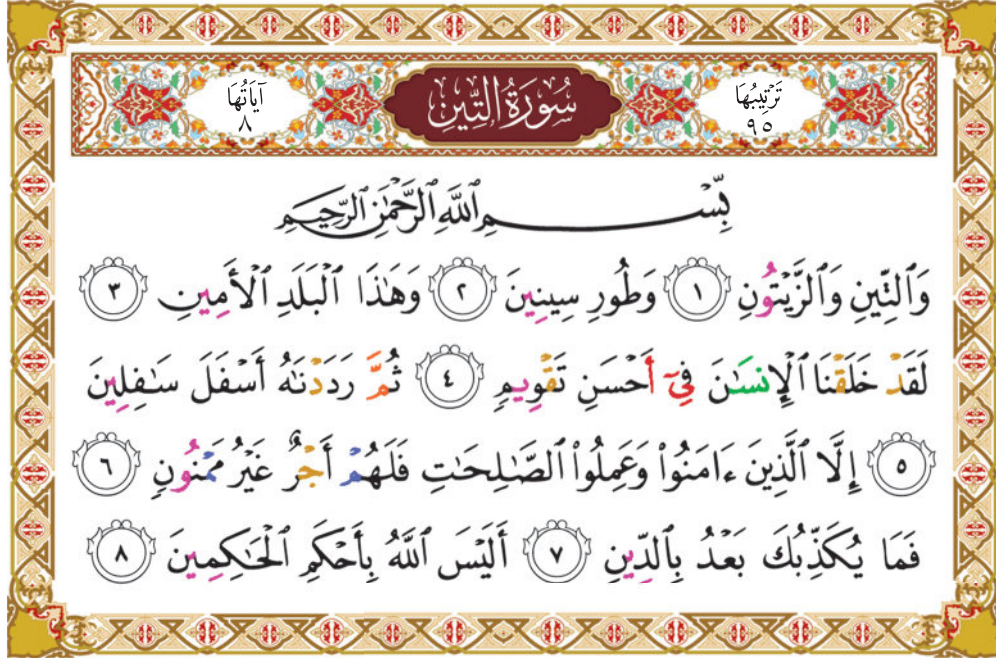 تَرْتِيبُهَا ٩٥ سُورَةُ التِّينِ آيَاتُهَا ٨
بِّسْمِ ٱللَّهِ ٱلرَّحْمَٰنِ ٱلرَّحِيمِ
وَٱلتِّينِ وَٱلزَّيْتُونِ ١ وَطُورِ سِينِينَ ٢ وَهَٰذَا ٱلْبَلَدِ ٱلْأَمِينِ ٣
لَقَدْ خَلَقْنَا ٱلْإِنسَٰنَ فِىٓ أَحْسَنِ تَقْوِيمٍ ٤ ثُمَّ رَدَدْنَٰهُ أَسْفَلَ سَٰفِلِينَ
٥ إِلَّا ٱلَّذِينَ ءَامَنُوا۟ وَعَمِلُوا۟ ٱلصَّٰلِحَٰتِ فَلَهُمْ أَجْرٌ غَيْرُ مَمْنُونٍ ٦
فَمَا يُكَذِّبُكَ بَعْدُ بِٱلدِّينِ ٧ أَلَيْسَ ٱللَّهُ بِأَحْكَمِ ٱلْحَٰكِمِينَ ٨